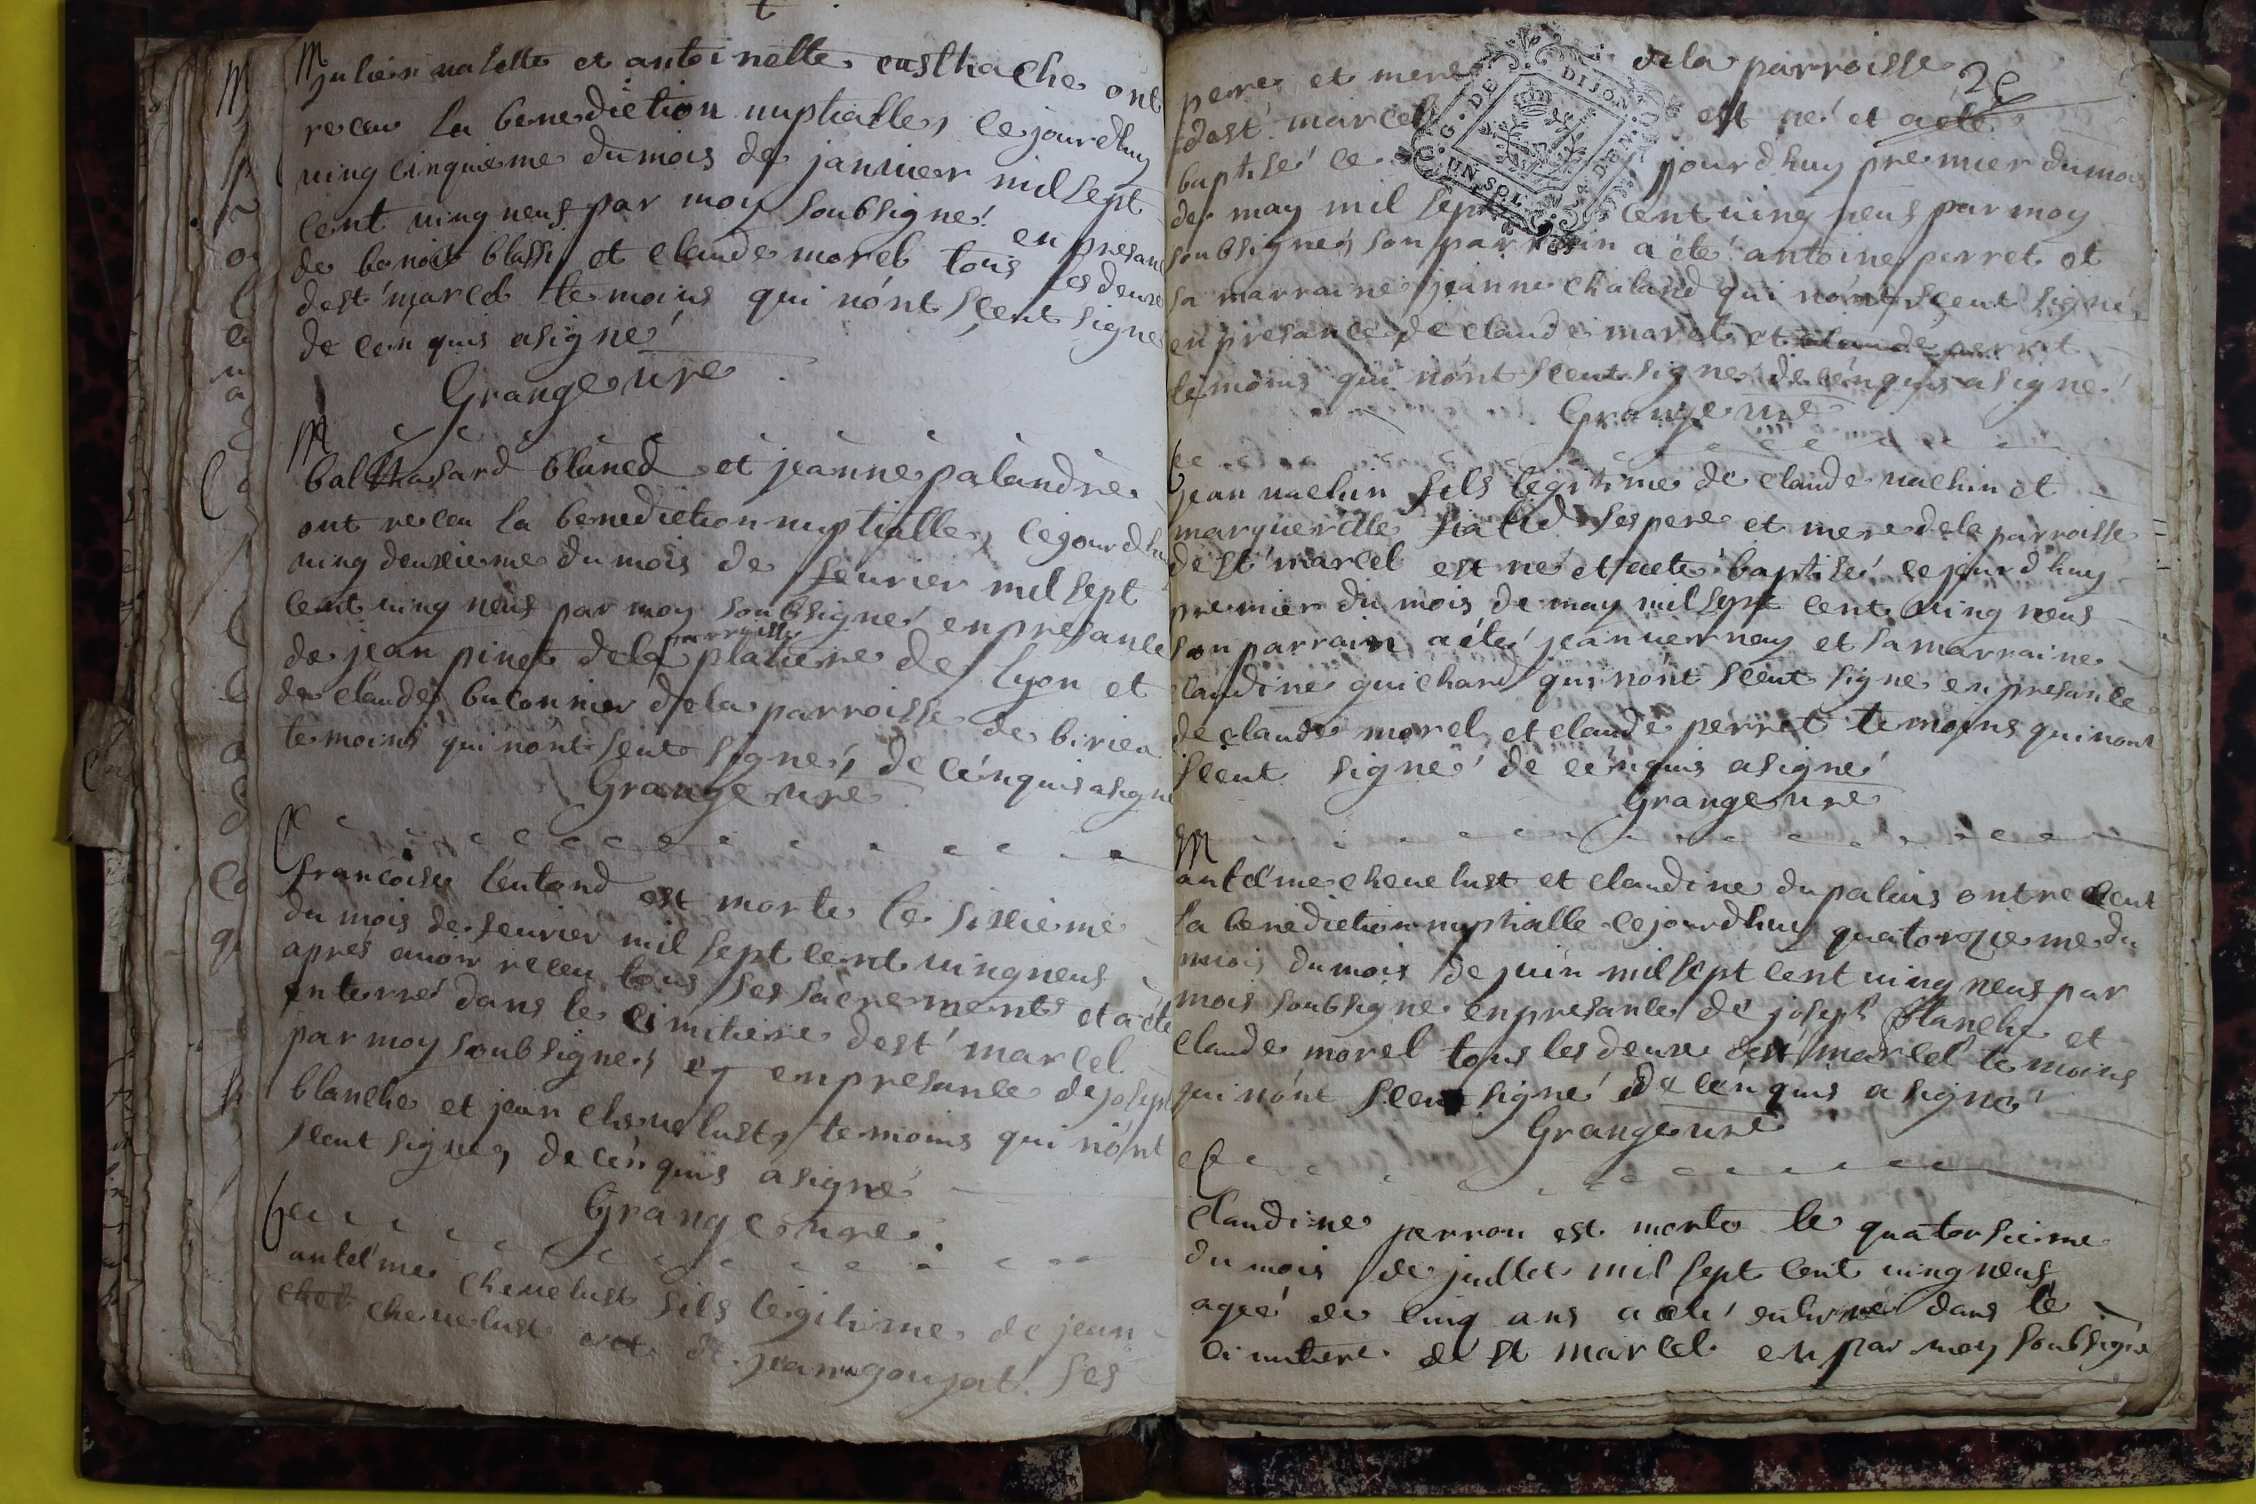 M
julien valette et antoinette eusthache ont
receu la benediction nuptialle, ce jourdhuy
ving cinquieme du mois de janvier mil sept
cent ving neuf par moy soubsigné en presance
de benoist blassy et claude morel tous les deux
de st marcel temoins qui n'ont sceut signé
de ce enquis a signé
Grange curé
M
balthasard blaned et jeanne palandre
ont receu la benediction nuptialle, ce jourdhuy
ving deuxieme du mois de fevrier mil sept
cent ving neuf par moy soubsigné en presance
de jean pinet de la parroisse platiere de Lyon et
de claude butonnier de la parroisse de birieu
temoins qui n'ont sceut signé, de cénquis a signé
Grange curé
francoise teutand est morte le sixieme
du mois de fevrier mil sept cent ving neuf
apres avoir receu tous ses sacrements et a été
enterré dans le cimitiere de st marcel
par moy soubsigné, en presance de joseph
blanche et jean chevelust, temoins qui n'ont
sceut signé, de cénquis a signé
Grange curé
antelme chevelust fils légitime de jean
chevelust et de jeanne goujat ses
pere et mere de la parroisse
25
de st marcel est né et a été
baptisé ce jourdhuy premier du mois
de may mil sept cent ving neuf par moy
soubsigné, son parrain a été antoine perret et
sa marraine jeanne chaland qui n'ont sceut signé,
en presance de claude morel et claude perret
temoins qui n'ont sceut signé de cénquis a signé
Grange curé
G. DE DIJON
UN SOL
jean vuchin fils legitime de claude vuchin et
margueritte ses pere et mere de la parroisse
de st marcel est né et a été baptisé ce jourdhuy
premier du mois de may mil sept cent ving neuf
son parrain a été jean vernay et sa marraine
claudine guichard qui n'ont sceut signé en presance
de claude morel et claude perret temoins qui n'ont
sceut signé de cénquis a signé
Grange curé
M
antelme chevelust et claudine dupalais ont receut
la benediction nuptialle ce jourdhuy quatorzieme du
mois du mois de juin mil sept cent ving neuf par
mois soubsigné en presance de joseph blanche et
claude morel tous les deux de st marcel temoins
qui n'ont sceut signé de cénquis a signé
Grange curé
claudine perron est morte le quatorsieme
du mois de juillet mil sept cent ving neuf
ageé de cinq ans a été enterré dans le
cimitiere de st marcel en par moy soubsigné